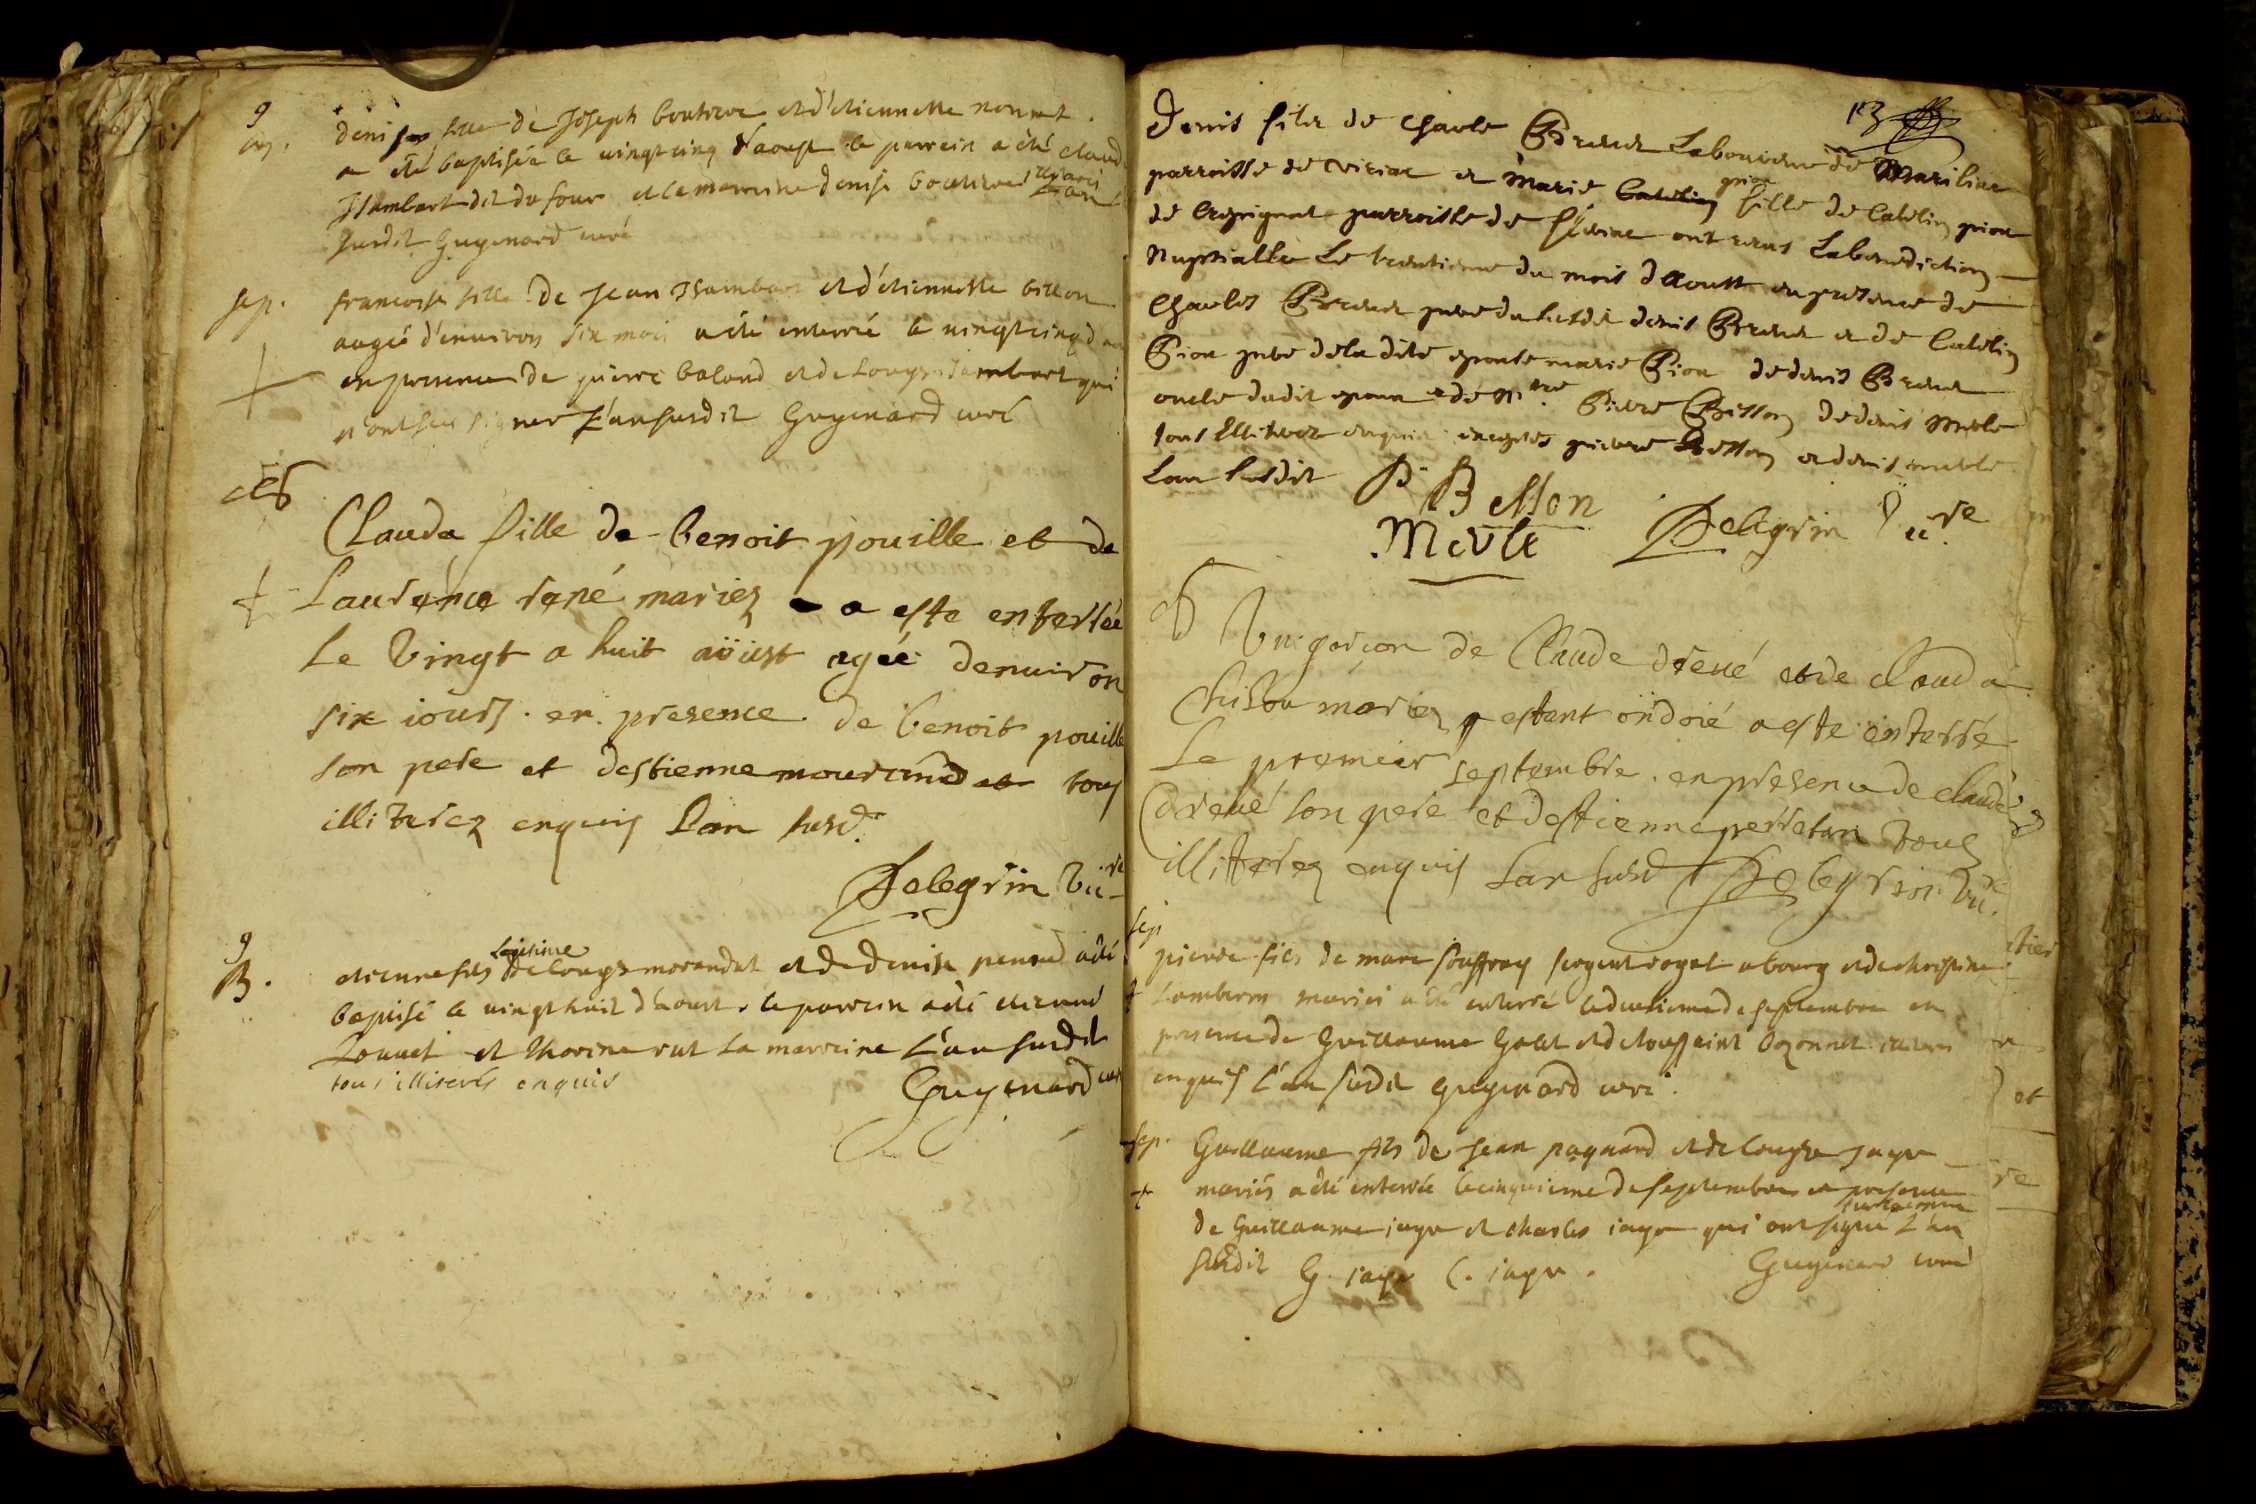 9
bap.
denise fille de Joseph bouturet et d'etiennette nonnet
a été baptisée le vingtcinq d'aoust le parrein a été claud
Isambart dit du four et la marreine denise bouturet l'an
susdit Guyenard curé
sep.
francoise fille de Jean Isambart et d'étiennette billon
augée d'environ six mois a été enterrée le vingtcinq d'ao
en presence de pierre baland et de Louys Isambart qui
n'ont sceu signer L'an susdit Guyenard curé
Clauda fille de benoit pouille et de
Laurence rené mariez a este enterrée
Le Vingt a huit aüust agée denuiron
six iours en presence de benoit pouille
son pere et destienne mourand et tous
illiterez enquis L'an susd.
Pelegrin Vire
9
B.
etienne fils legitime de Louys morandat et de denise penud a été
baptisé le vingthuit d'aoust le parrein a été etienne
Louuet et thorine rut la marreine L'an susdit
tous illiterés enquis
Guyenard curé
Denis filz de Charle Brevet Laboureur de Mariliat
parroisse de viriat et Marie pion fille de Catelin pion
de Crepignat parroisse de fleiriat ont receus La benediction
Nuptialle Le trentieme du mois d'aoust en presence de
Charles Brevet pere du susdit denis Brevet et de Catelin
Pion pere de la dite epouse marie Pion de denis Brevet
oncle dudit epoux et de Mtre Pierre Besson de denis Merle
tous Ellitteres enquis exceptes pierre Besson et denis merle
L'an susdit
P Besson
Merle
Pelegrin Vire
Vn garçon de Claude dreué et de Clauda
Chilou mariez estant ondoié a este enterré
Le premier septembre en presence de claude
dreué son pere et destienne perretan tous
illiterez enquis L'an susd Pelegrin Vire
sep
pierre fils de marc souffray sergent royal a bourg et de chrystine
Lamberon mariés a été enterré le deuxieme de septembre en
presence de Guillaume Galet et de toussaint bozonnet illiterés
enquis L'an susdit Guyenard curé
sep.
Guillaume fils de Jean paquand et de Louyse jayr
mariés a été enterrée le cinquieme de septembre en presence
de Guillaume jayr et charles jayr qui ont signé L'an
susdit G. jayr C. jayr.
Guyenard curé